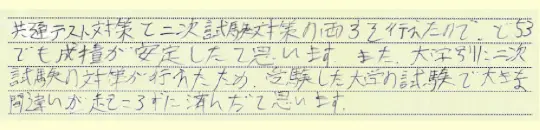 共通テスト対策と二次試験対策の両方を行えたので、どちら
でも成績が安定したと思います。また、大学別に二次
試験の対策が行えたため、受験した大学の試験で大きな
間違いが起こらずに済んだと思います。